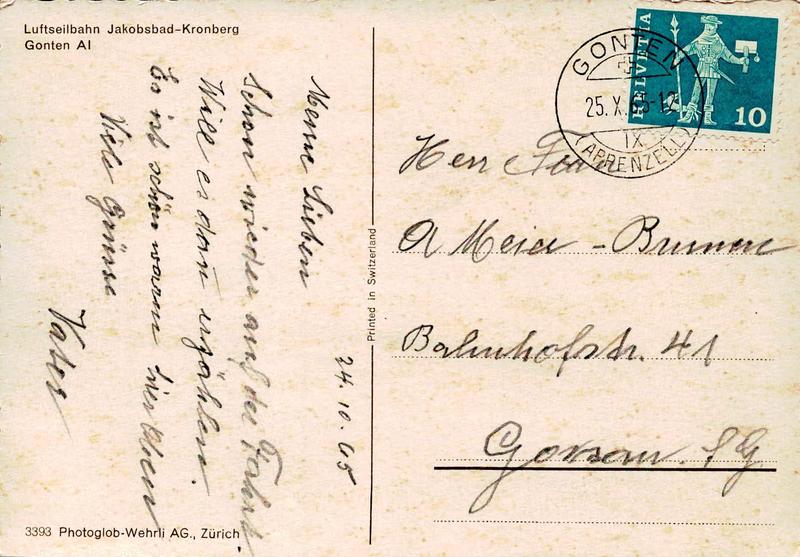 Luftseilbahn Jakobsbad-Kronberg
Gonten AI
24.10.65
Meine Lieben
Schon wieder auf der Fahrt.
Will es dan erzählen.
Es ist schön warm hier Oben
Viele Grüsse
Vater
3393 Photoglob-Wehrli AG., Zürich
Printed in Switzerland
HELVETIA
10
GONTEN
25.X.65-12
IX
(APPENZELL)
Herr
A Meier-
Bahnhofstr. 41
Gossau. SG.